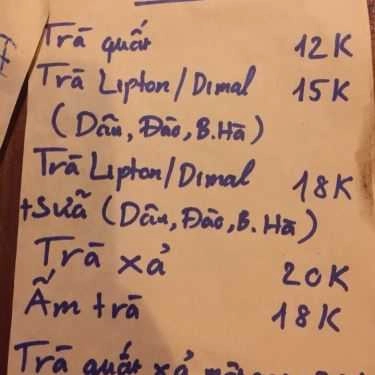 Trà quất 12K
Trà Lipton/Dimal 15K
(Dâu, Đào, B.Hà)
Trà Lipton/Dimal 18K
+Sữa (Dâu, Đào, B.Hà)
Trà xả 20K
Ấm trà 18K
Trà quất xả